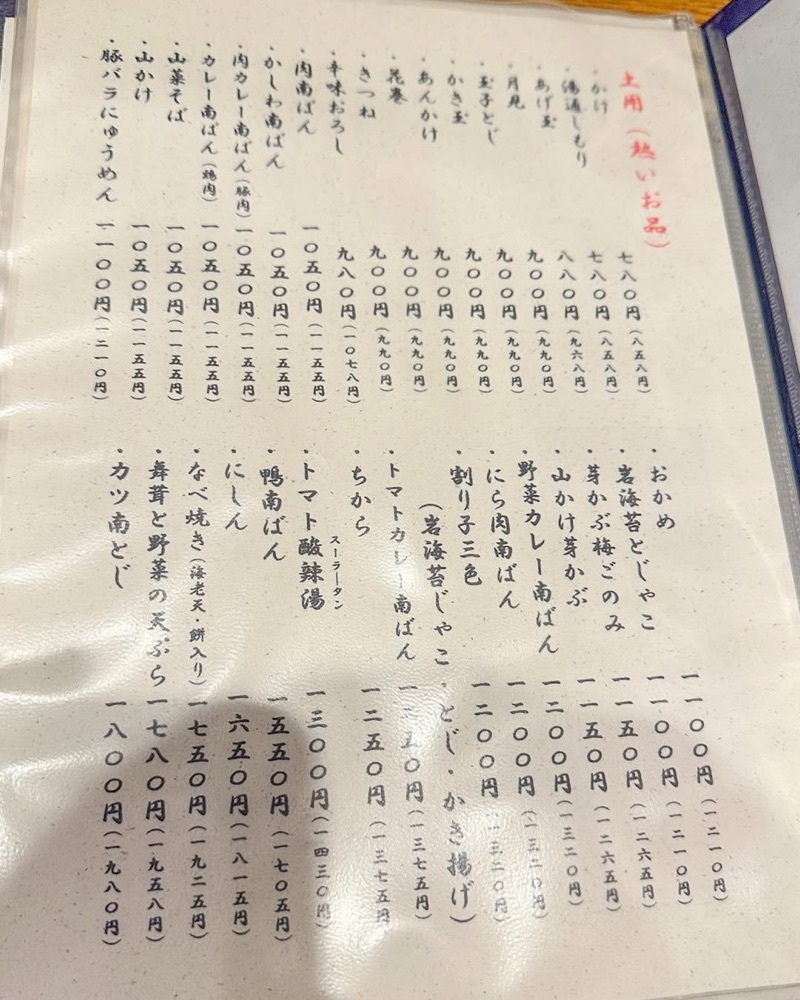 土用（熱いお品）
・かけ 七八〇円（八五八円）
・湯通しもり 七八〇円（八五八円）
・あげ玉 八八〇円（九六八円）
・月見 九〇〇円（九九〇円）
・玉子とじ 九〇〇円（九九〇円）
・かき玉 九〇〇円（九九〇円）
・あんかけ 九〇〇円（九九〇円）
・花巻 九〇〇円（九九〇円）
・きつね 九〇〇円（九九〇円）
・辛味おろし 九八〇円（一〇七八円）
・肉南ばん 一〇五〇円（一一五五円）
・かしわ南ばん 一〇五〇円（一一五五円）
・肉カレー南ばん（豚肉） 一〇五〇円（一一五五円）
・カレー南ばん（鶏肉） 一〇五〇円（一一五五円）
・山菜そば 一〇五〇円（一一五五円）
・山かけ 一〇五〇円（一一五五円）
・豚バラにゅうめん 一一〇〇円（一二一〇円）
・おかめ 一一〇〇円（一二一〇円）
・岩海苔とじゃこ 一一〇〇円（一二一〇円）
・芽かぶ梅ごのみ 一一五〇円（一二六五円）
・山かけ芽かぶ 一一五〇円（一二六五円）
・野菜カレー南ばん 一二〇〇円（一三二〇円）
・にら肉南ばん 一二〇〇円（一三二〇円）
・割り子三色 一二〇〇円（一三二〇円）
（岩海苔じゃこ・とじ・かき揚げ）
・トマトカレー南ばん 一二五〇円（一三七五円）
・ちから 一二五〇円（一三七五円）
スーラータン
・トマト酸辣湯 一三〇〇円（一四三〇円）
・鴨南ばん 一五五〇円（一七〇五円）
・にしん 一六五〇円（一八一五円）
・なべ焼き（海老天・餅入り） 一七五〇円（一九二五円）
・舞茸と野菜の天ぷら 一七八〇円（一九五八円）
・カツ南とじ 一八〇〇円（一九八〇円）